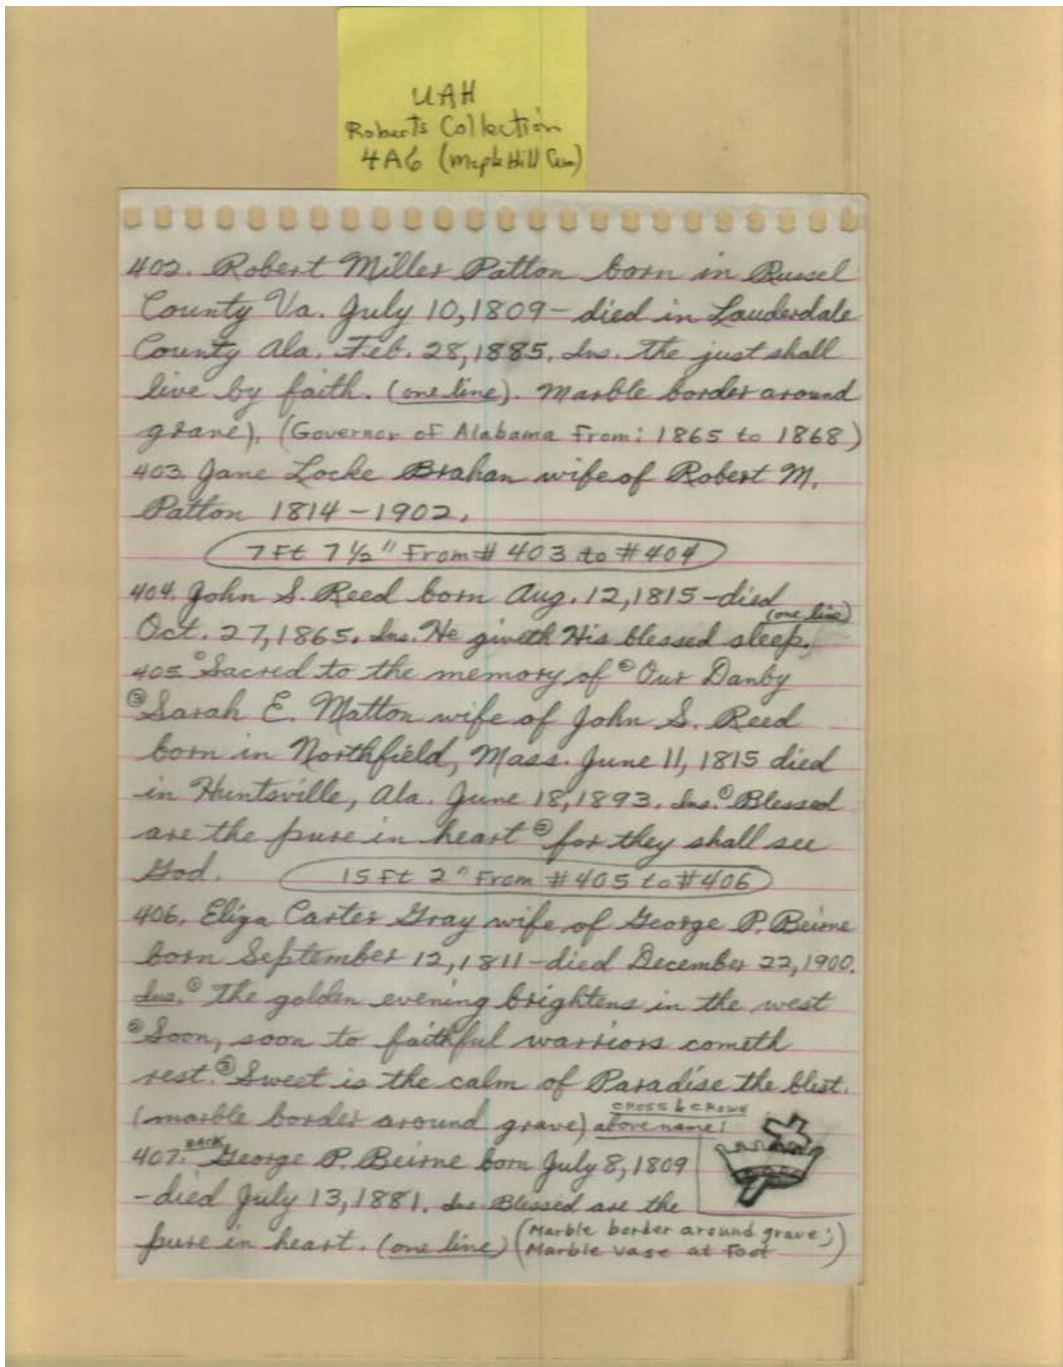 UAH
Roberts Collection
4A6 (Maple Hill Cem)
402. Robert Miller Patton born in Russel
County Va. July 10, 1809 - died in Lauderdale
County Ala. Feb. 28, 1885. Ins. The just shall
live by faith. (one line). Marble border around
grave), (Governor of Alabama From: 1865 to 1868)
403. Jane Locke Brahan wife of Robert M.
Patton 1814 - 1902.
7 Ft 7 1/2" From # 403 to # 404
404. John S. Reed born Aug. 12, 1815 - died
(one line)
Oct. 27, 1865. Ins. He giveth His blessed sleep.
405. ① Sacred to the memory of ② Our Danby
③ Sarah E. Matton wife of John S. Reed
born in Northfield, Mass. June 11, 1815 died
in Huntsville, Ala. June 18, 1893. Ins. ① Blessed
are the pure in heart ② for they shall see
God. 15 Ft 2" From # 405 to # 406
406. Eliza Carter Gray wife of George P. Beirne
born September 12, 1811 - died December 22, 1900.
Ins. ① The golden evening brightens in the west
② Soon, soon to faithful warriors cometh
rest. ③ Sweet is the calm of Paradise the blest.
(marble border around grave) cross & crown
above name:
407. BACK George P. Beirne born July 8, 1809
- died July 13, 1881. Ins. Blessed are the
pure in heart. (one line) (Marble border around grave;
Marble vase at Foot)